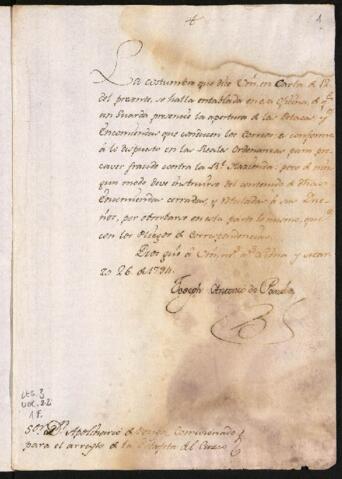 1
La costumbre que dice Vm. en Carta de 12
del presente, se halla entablada en esa Oficina, de qe.
un Guarda presencie la apertura de las Petacas, y
Encomiendas que conducen los Correos es conforme
á lo dispuesto en las Reales Ordenanzas para pre-
caver fraude contra la Rl. Hacienda: pero de nin-
gun modo deve instruirse del contenido de dhas
Encomiendas cerradas, y rotuladas á sus Due-
ños, por observarse en esta parte lo mismo, que
con los Pliegos de Correspondencia.
Dios gue. á Vm. ms. as. Lima y
ro 26. de 1794.
Joseph Antonio de Pando
LEG. 3
VOL. 22
1 F.
Sor. Dn. Apolinario de Comisionado
para el arreglo de la Estafeta del Cuzco